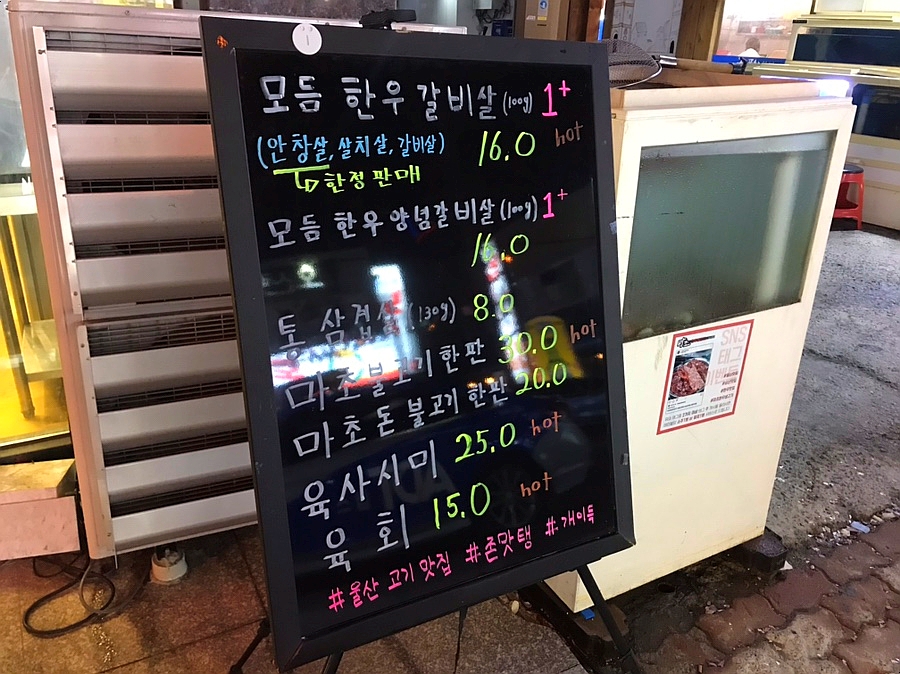 모듬 한우 갈비살 (100g) 1+
(안창살, 살치살, 갈비살) 16.0 hot
한정판매
모듬 한우양념갈비살 (100g) 1+
16.0
통 삼겹살 (130g) 8.0
마초불고기한판 30.0 hot
마초돈불고기한판 20.0
육사시미 25.0 hot
육회 15.0 hot
#울산 고기 맛집 #존맛탱 #개이득
SNS
태그
이벤트